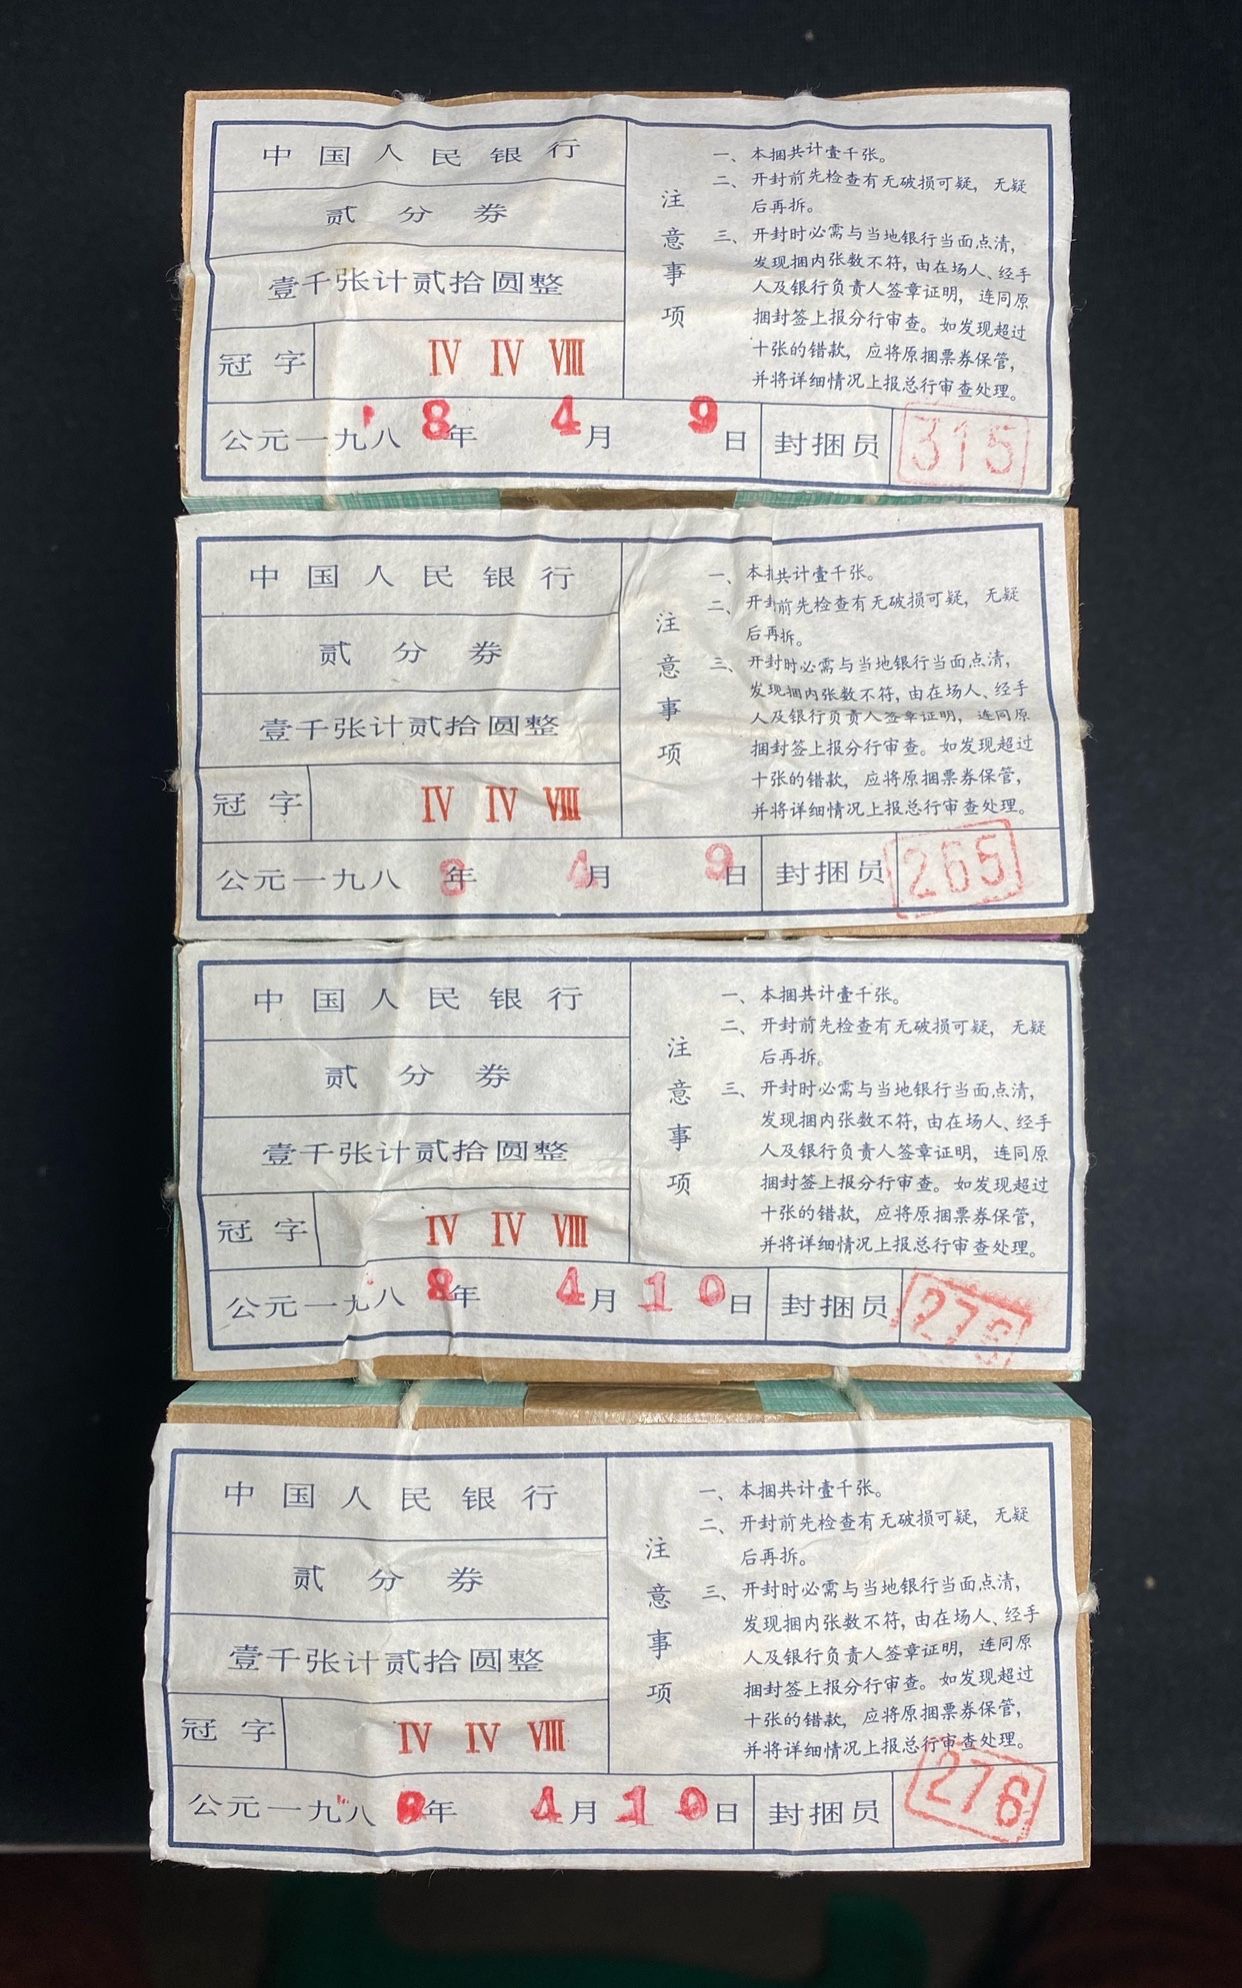 中国人民银行
贰分券
壹千张计贰拾圆整
冠字 IV IV VIII
公元一九八8年4月9日 封捆员 315
注意事项
一、本捆共计壹千张。
二、开封前先检查有无破损可疑，无疑
后再拆。
三、开封时必需与当地银行当面点清，
发现捆内张数不符，由在场人、经手
人及银行负责人签章证明，连同原
捆封签上报分行审查。如发现超过
十张的错款，应将原捆票券保管，
并将详细情况上报总行审查处理。
中国人民银行
贰分券
壹千张计贰拾圆整
冠字 IV IV VIII
公元一九八8年4月9日 封捆员 265
注意事项
一、本共计壹千张。
二、开封前先检查有无破损可疑，无疑
后再拆。
三、开封时必需与当地银行当面点清，
发现捆内张数不符，由在场人、经手
人及银行负责人签章证明，连同原
捆封签上报分行审查。如发现超过
十张的错款，应将原捆票券保管，
并将详细情况上报总行审查处理。
中国人民银行
贰分券
壹千张计贰拾圆整
冠字 IV IV VIII
公元一九八8年4月10日 封捆员 276
注意事项
一、本捆共计壹千张。
二、开封前先检查有无破损可疑，无疑
后再拆。
三、开封时必需与当地银行当面点清，
发现捆内张数不符，由在场人、经手
人及银行负责人签章证明，连同原
捆封签上报分行审查。如发现超过
十张的错款，应将原捆票券保管，
并将详细情况上报总行审查处理。
中国人民银行
贰分券
壹千张计贰拾圆整
冠字 IV IV VIII
公元一九八8年4月10日 封捆员 276
注意事项
一、本捆共计壹千张。
二、开封前先检查有无破损可疑，无疑
后再拆。
三、开封时必需与当地银行当面点清，
发现捆内张数不符，由在场人、经手
人及银行负责人签章证明，连同原
捆封签上报分行审查。如发现超过
十张的错款，应将原捆票券保管，
并将详细情况上报总行审查处理。